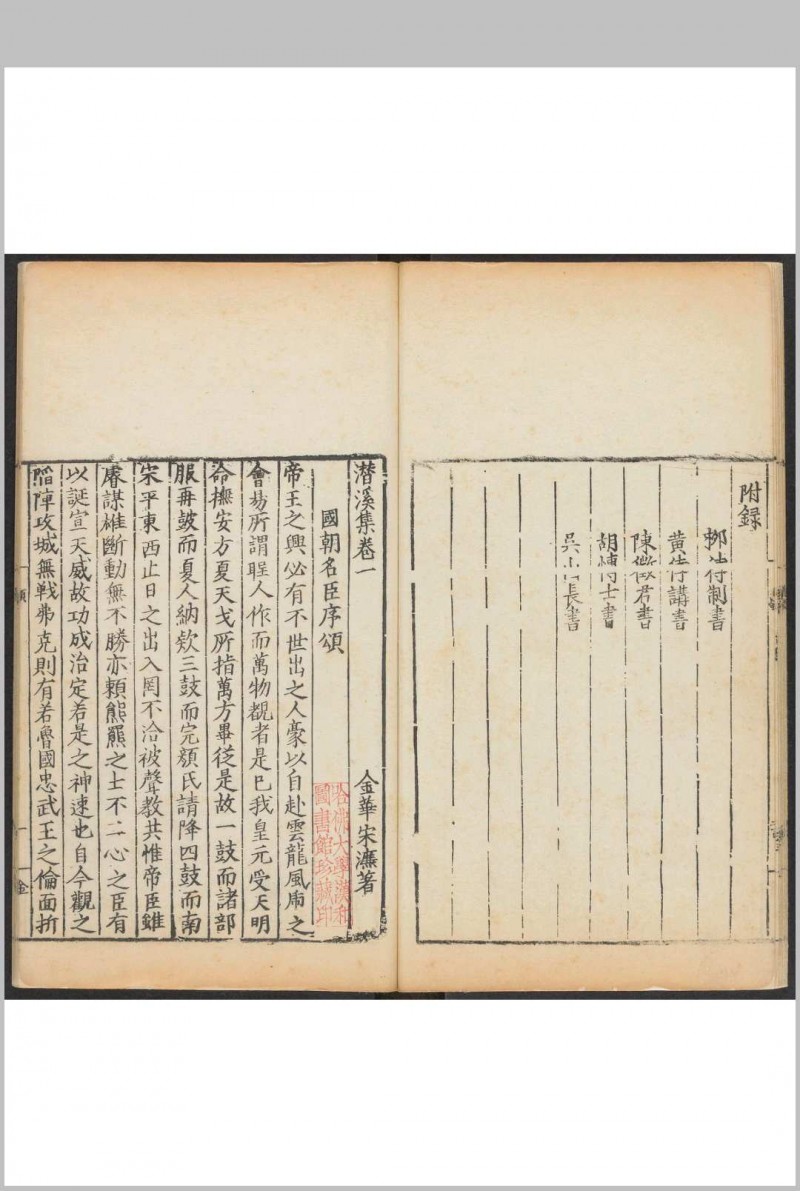 附録
柳待制書
黃侍講書
陳徵君書
胡博士書
長書
潛溪集卷一
金華宋濂著
國朝名臣序頌
帝王之興必有不世出之人豪以自赴雲龍風虎之
會易所謂聖人作而萬物覩者是已我皇元受天明
命撫安方夏天戈所指萬方畢從是故一鼓而諸部
服再鼓而夏人納欵三鼓而完顏氏請降四鼓而南
宋平東西止日之出入罔不洽被聲教共惟帝臣雖
睿謀雄斷動無不勝亦頼熊羆之士不二心之臣有
以誕宣天威故功成治定若是之神速也自今觀之
陷陣攻城無戦弗克則有若魯國忠武王之倫面折
哈佛大學漢和
圖書館珍藏印
頌
一
金